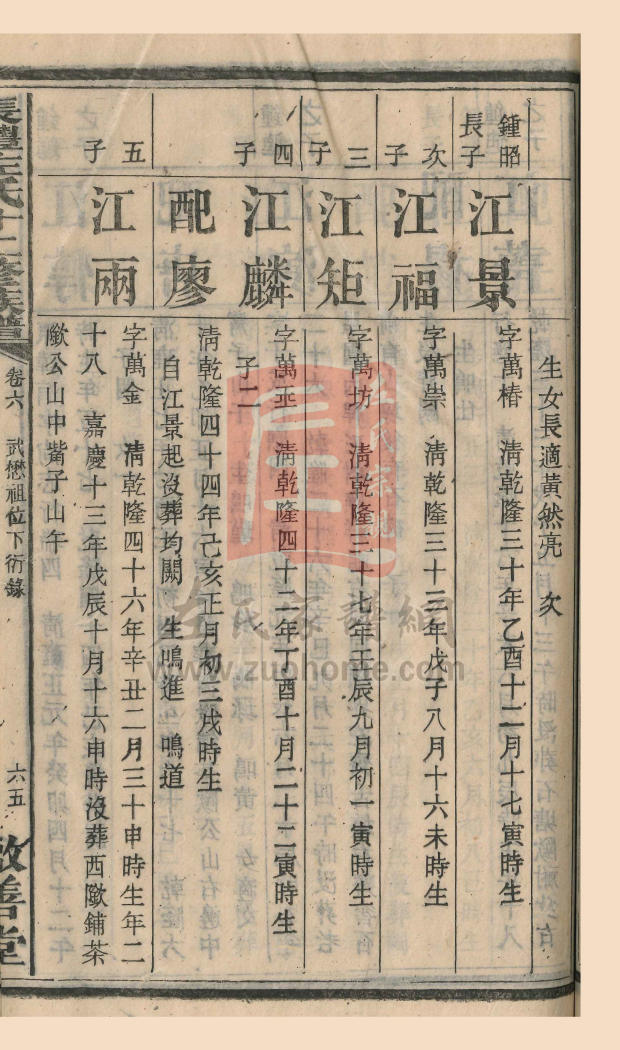 生女長適黃然亮 次
鍾昭長子
江景
字萬椿 清乾隆三十年乙酉十二月十七寅時生
次子
江福
字萬崇 清乾隆三十三年戊子八月十六未時生
三子
江矩
字萬坊 清乾隆三十七年壬辰九月初一寅時生
四子
江麟
字萬玉 清乾隆四十二年丁酉十月二十二寅時生
子二
配廖
清乾隆四十四年己亥正月初三戌時生
自江景起沒葬均闕 生鳴進 鳴道
五子
江兩
字萬金 清乾隆四十六年辛丑二月三十申時生年二
十八 嘉慶十三年戊辰十月十六申時沒葬西歐鋪茶
歐公山中觜子山午
左氏十二修族譜
卷六 武懋祖位下衍錄
六五
敦善堂
左氏家譜網
www.zuohome.com